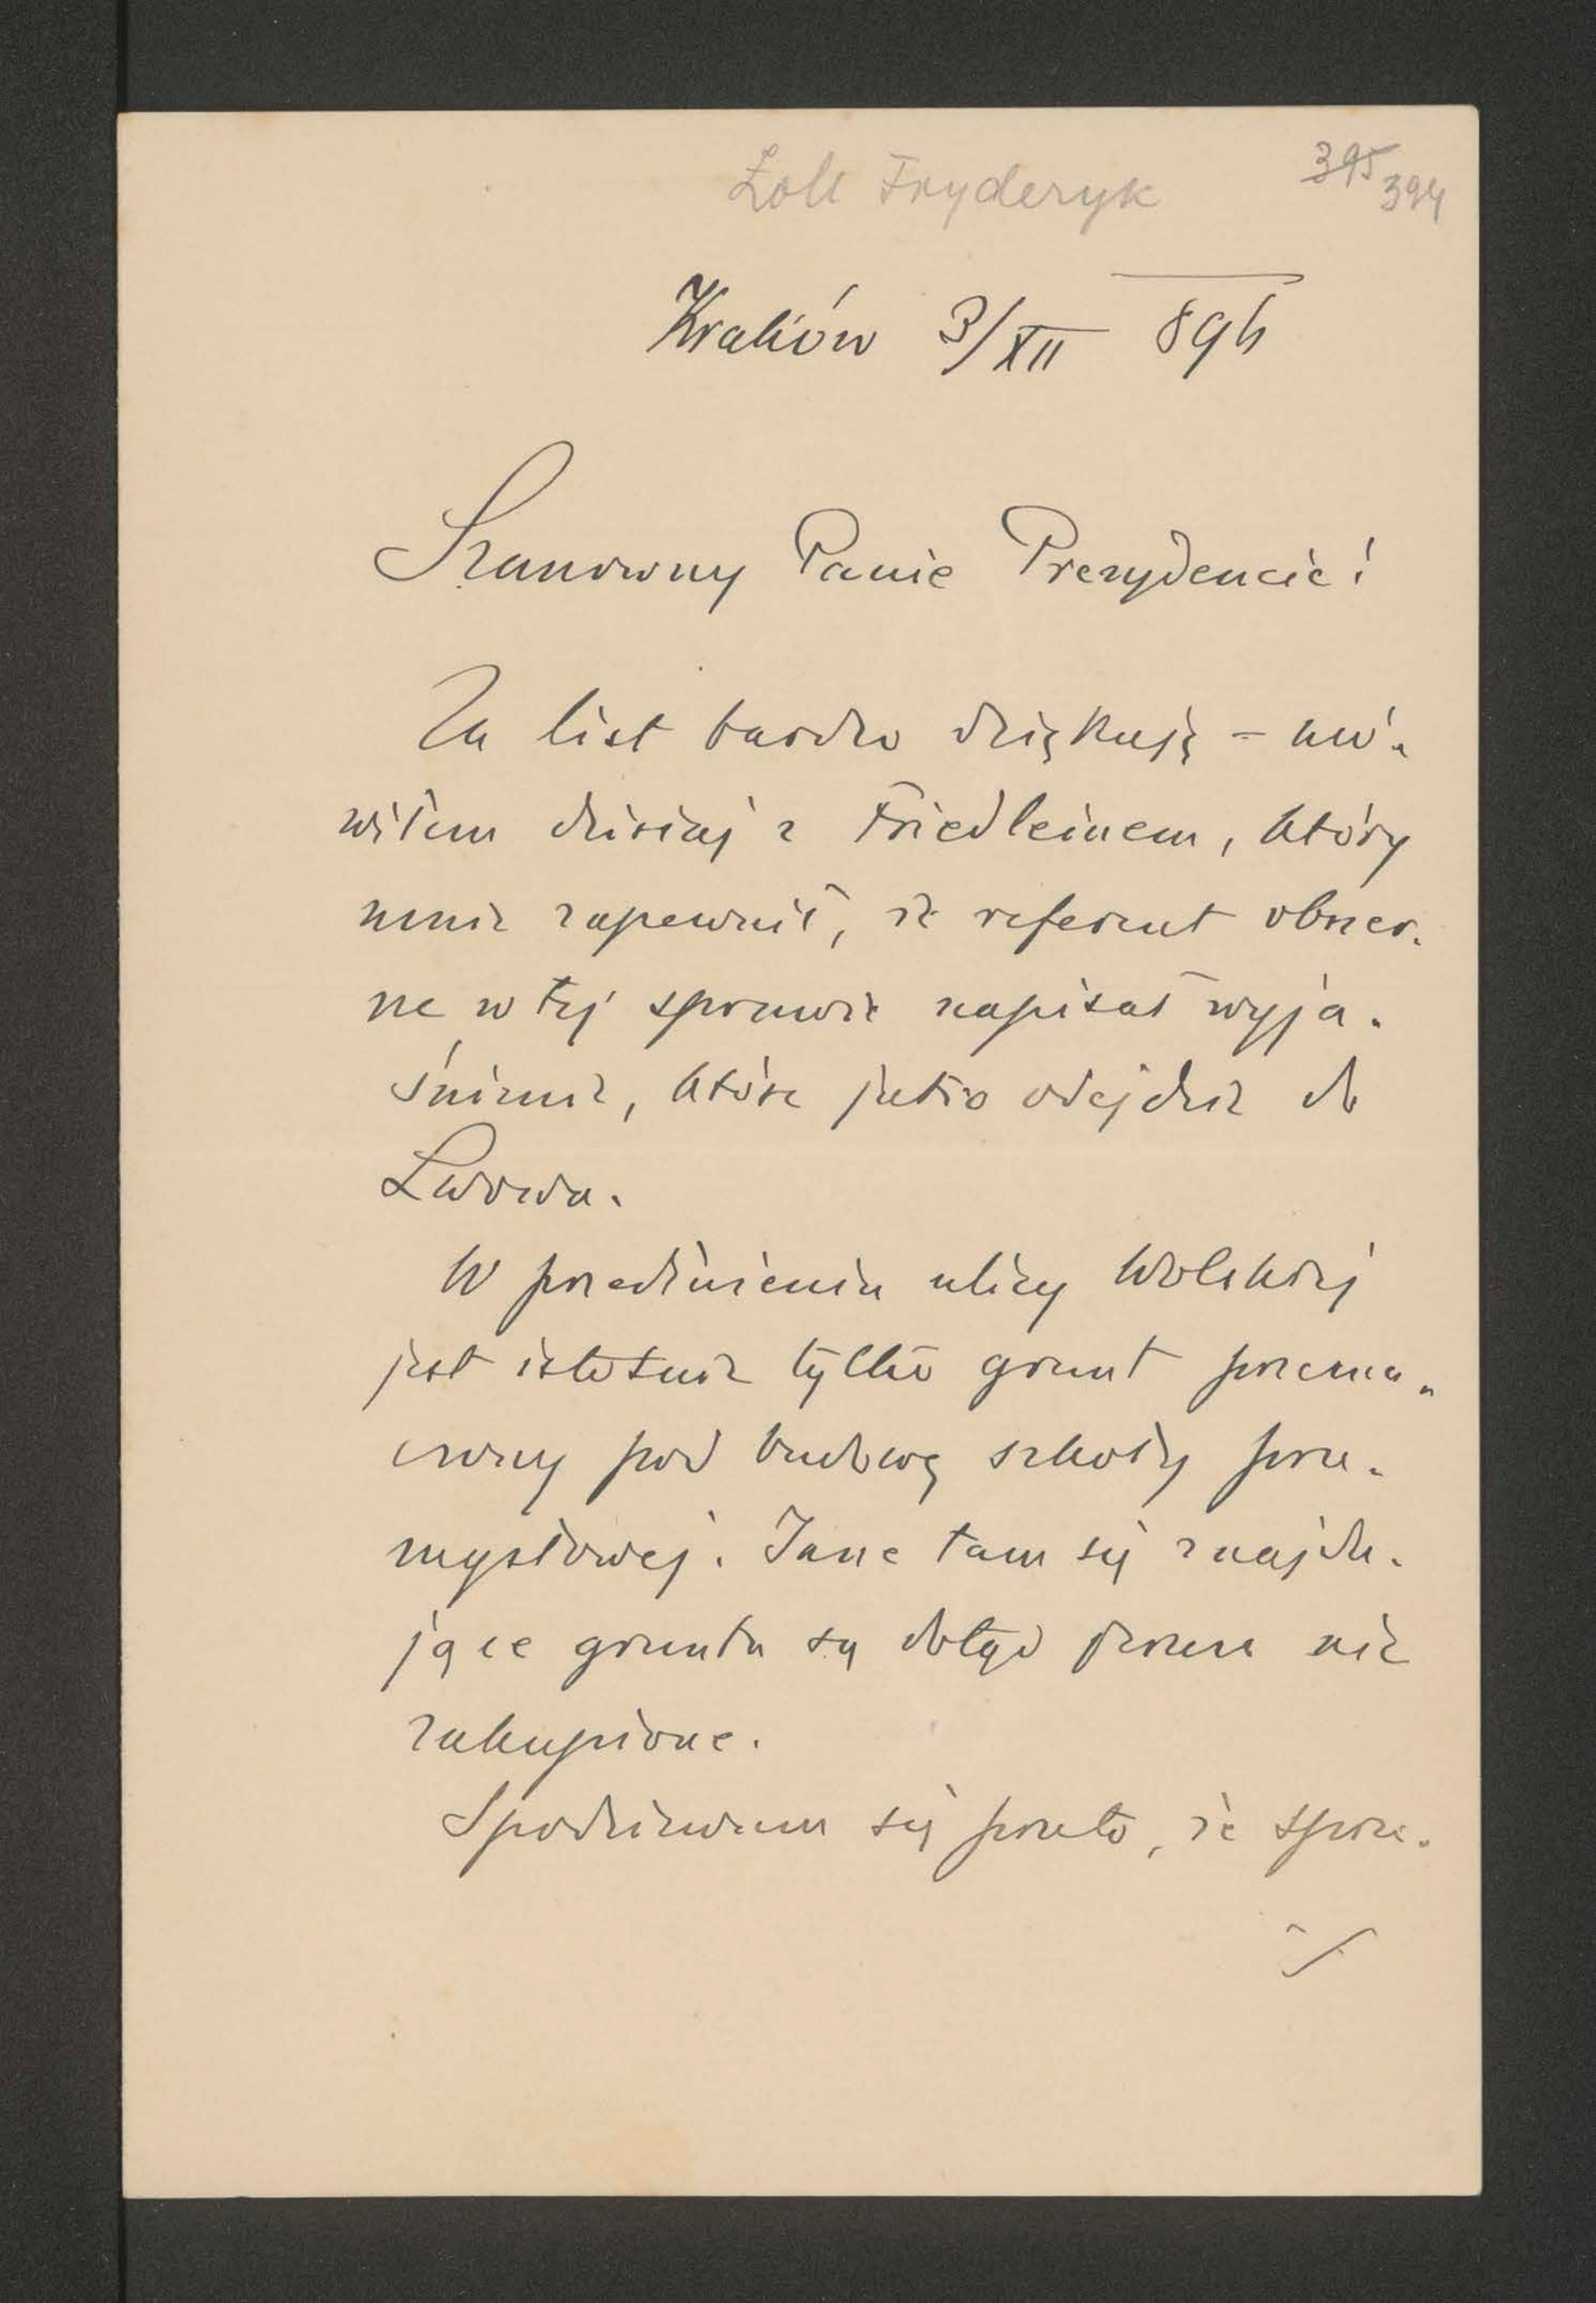 Zoll Fryderyk
395 394
Kraków 3/XII 896
Szanowny Panie Prezydencie!
Za list bardzo dziękuję – mó-
wiłem dzisiaj z Friedleinem, który
mnie zapewnił, że referent obszer-
ne w tej sprawie napisał wyja-
śnienie, które jutro odejdzie do
Lwowa.
W przedłużeniu ulicy Wolskiej
jest istotnie tylko grunt przezna-
czony pod budowę szkoły prze-
mysłowej. Inne tam się znajdu-
jące grunta są dotąd jeszcze nie
zakupione.
Spodziewam się przeto, że spra-